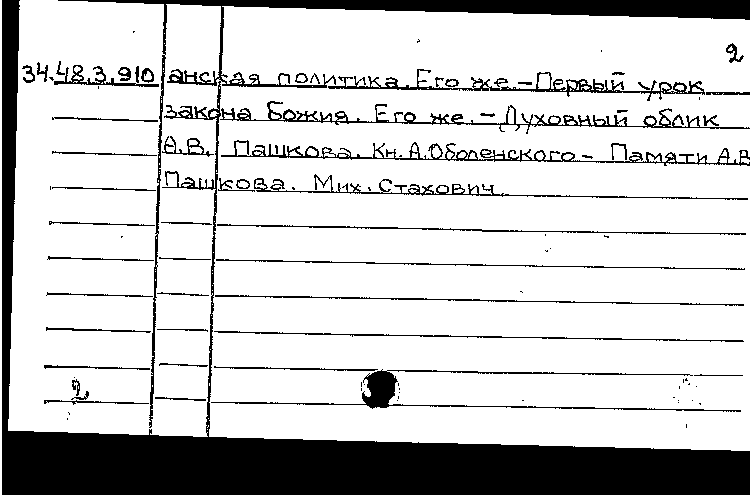 2
34.48.3.910 анская политика. Его же.-Первый урок
закона Божия. Его же.-Духовный облик
А.В. Пашкова. Кн.А.Оболенского- Памяти А.В
Пашкова. Мих.Стахович.
2